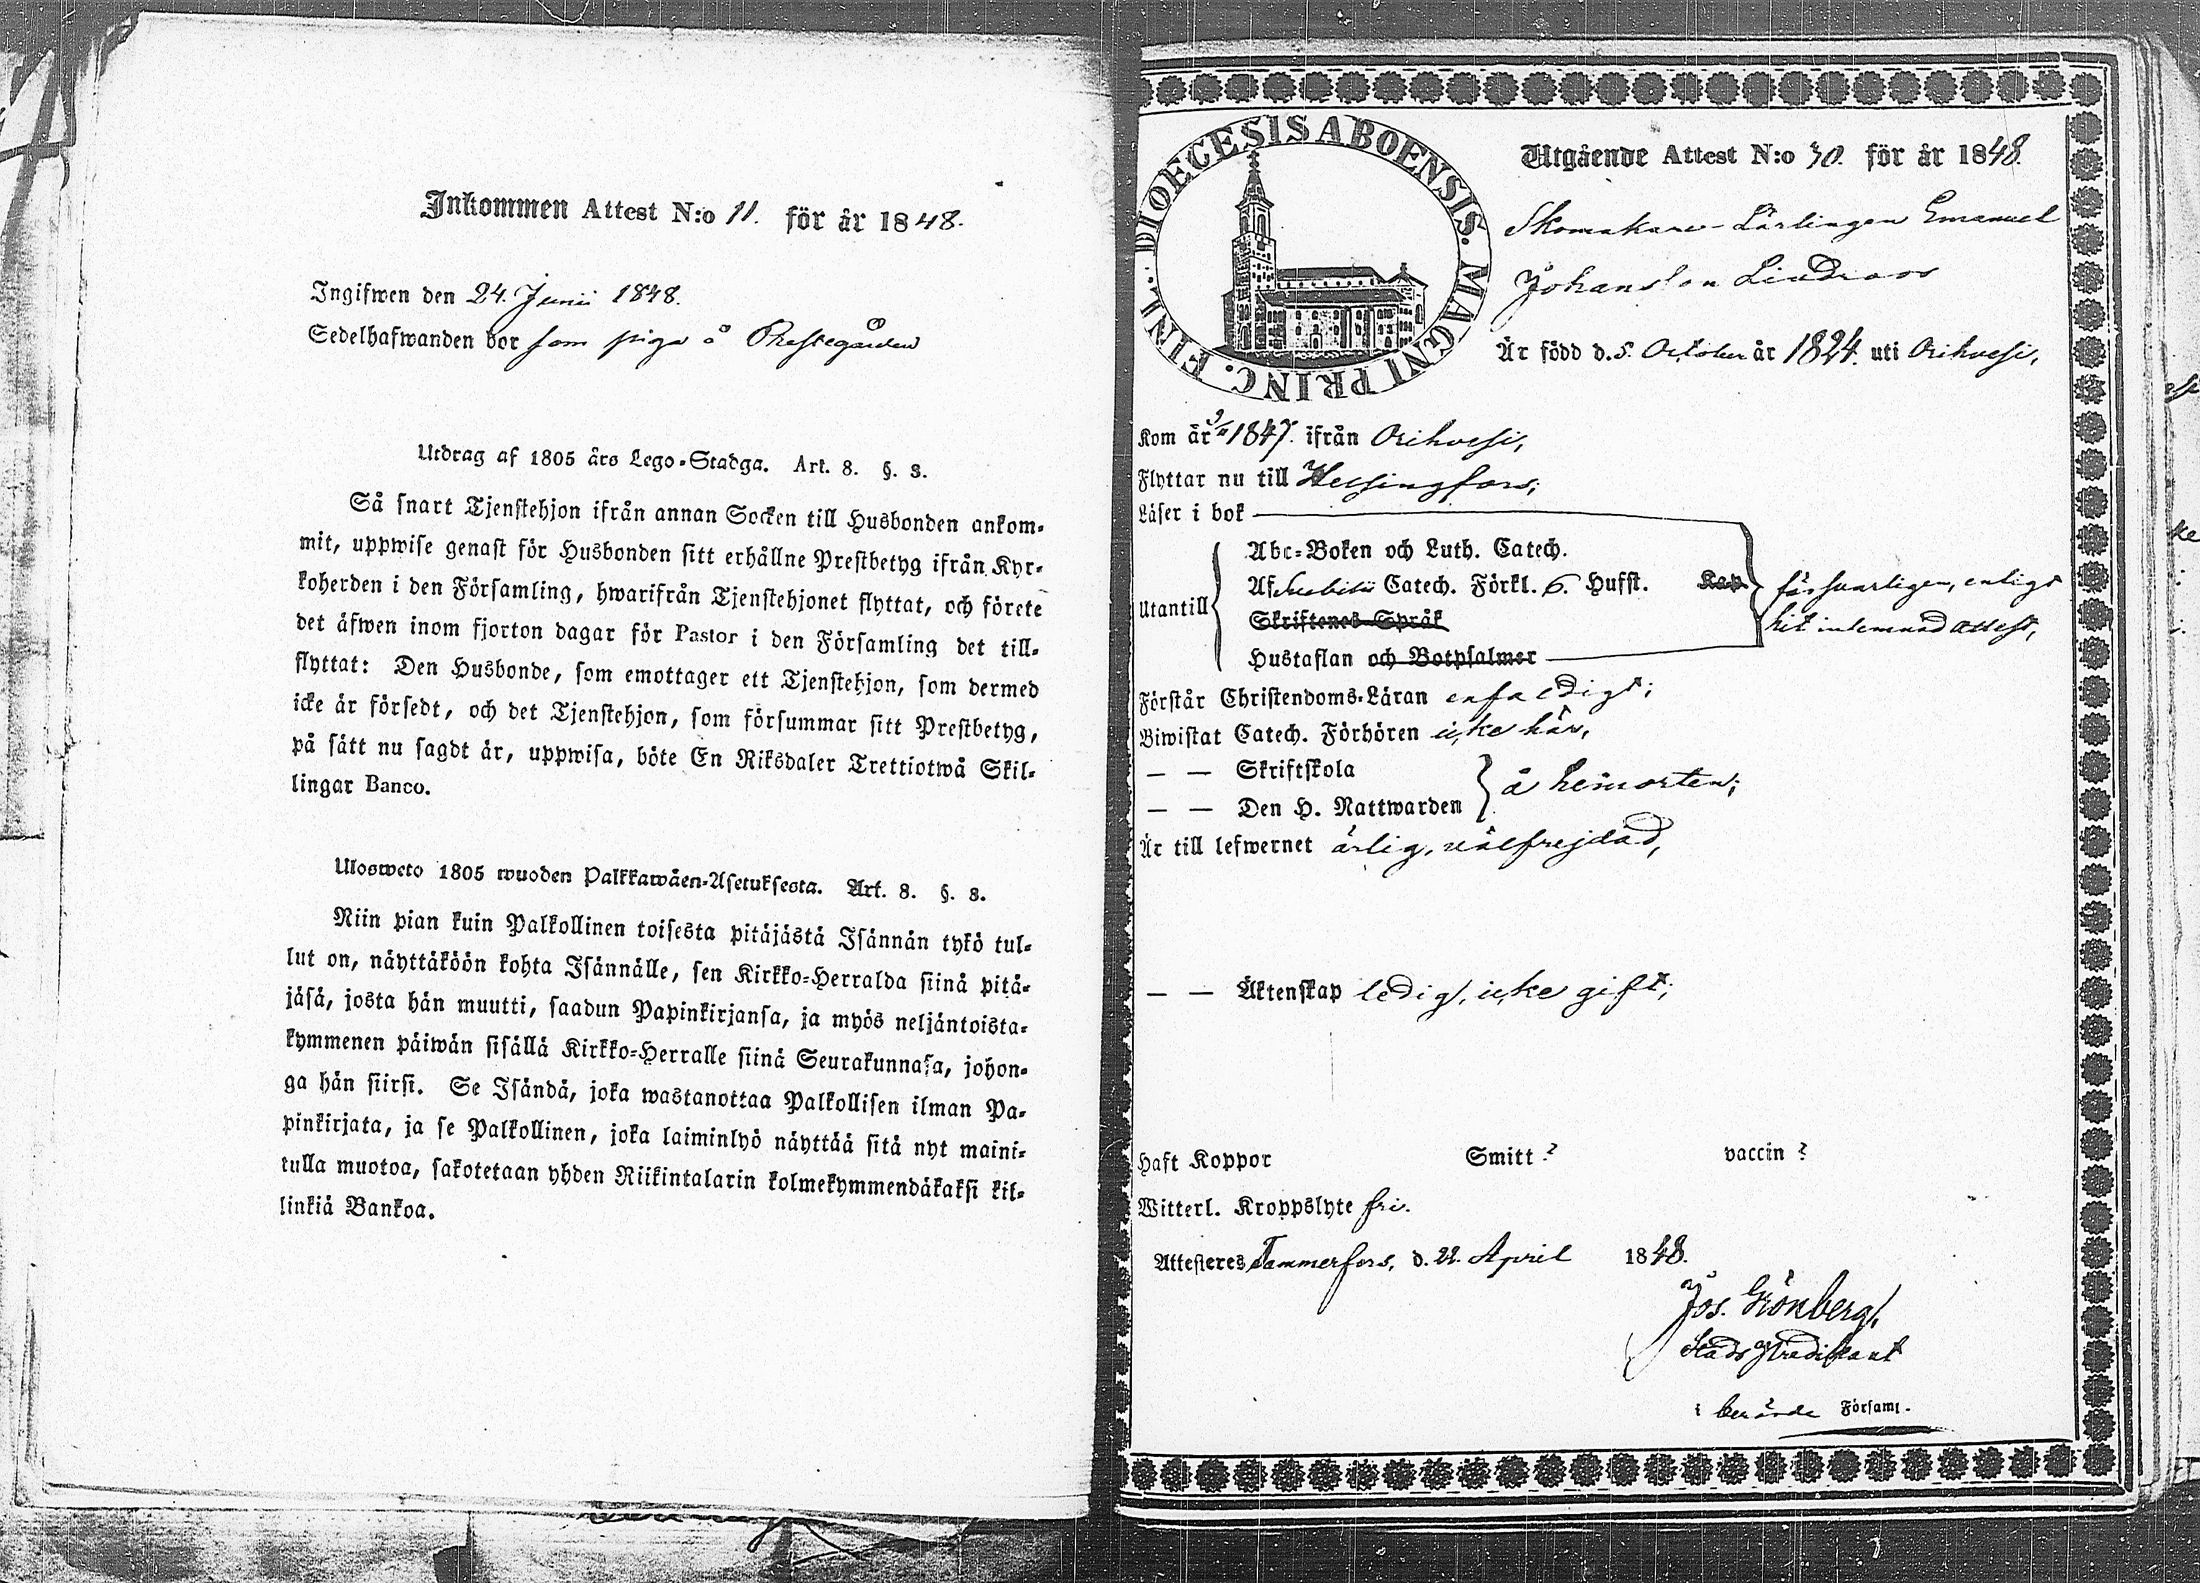 Inkommen Attest N:o 11. för år 1848.
Ingifwen den 24. Junii 1848.
Sedelhafwanden bor som piga å Prestegården
Utdrag af 1805 års Lego-Stadga. Art. 8. §. 3.
Så snart Tjenstehjon ifrån annan Socken till Husbonden ankom-
mit, uppwise genast för Husbonden sitt erhållne Prestbetyg ifrån Kyr-
koherden i den Församling, hwarifrån Tjenstehjonet flyttat, och förete
det äfwen inom fjorton dagar för Pastor i den Församling det till-
flyttat: Den Husbonde, som emottager ett Tjenstehjon, som dermed
icke är försedt, och det Tjenstehjon, som försummar sitt Prestbetyg,
på sätt nu sagdt är, uppwisa, böte En Riksdaler Trettiotwå Skil-
lingar Banco.
Ulosweto 1805 wuoden Palkkawäen-Asetuksesta. Art. 8. §. 3.
Niin pian kuin Palkollinen toisesta pitäjästä Isännän tykö tul-
lut on, näyttäköön kohta Isännälle, sen Kirkko-Herralda siinä pitä-
jäsä, josta hän muutti, saadun Papinkirjansa, ja myös neljäntoista-
kymmenen päiwän sisällä Kirkko-Herralle siinä Seurakunnasa, johon-
ga hän siirsi. Se Isändä, joka wastanottaa Palkollisen ilman Pa-
pinkirjata, ja se Palkollinen, joka laiminlyö näyttää sitä nyt maini-
tulla muotoa, sakotetaan yhden Riikintalarin kolmekymmendäkaksi kil-
linkiä Bankoa.
DIOECESIS ABOENSIS. MAGNI PRINC. FINL.
Utgående Attest N:o 30. för år 1848.
Skomakare-Lärlingen Emanuel
Johansson Lindroos
Är född d. 5. October år 1824. uti Orihvesi,
Kom år 1847. ifrån Orihvesi,
Flyttar nu till Helsingfors;
Läser i bok
Utantill
Abc-Boken och Luth. Catech.
Af Svebilii Catech. Förkl. 6. Hufst. Kap
Skriftenes Språk
Hustaflan och Botpsalmer
försvarligen, enligt
hit inlemnad attest,
Förstår Christendoms-Läran enfaldigt;
Biwistat Catech. Förhören icke här,
— — Skriftskola
— — Den H. Nattwarden
å hemorten;
Är till lefwernet ärlig, välfrejdad,
— — Äktenskap ledig, icke gift;
Haft Koppor Smitt ? vaccin ?
Witterl. Kroppslyte fri.
Attesteres Tammerfors, d. 22. April 1848.
Jos. Grönberg,
Stads Prædikant
i berörde Församl.